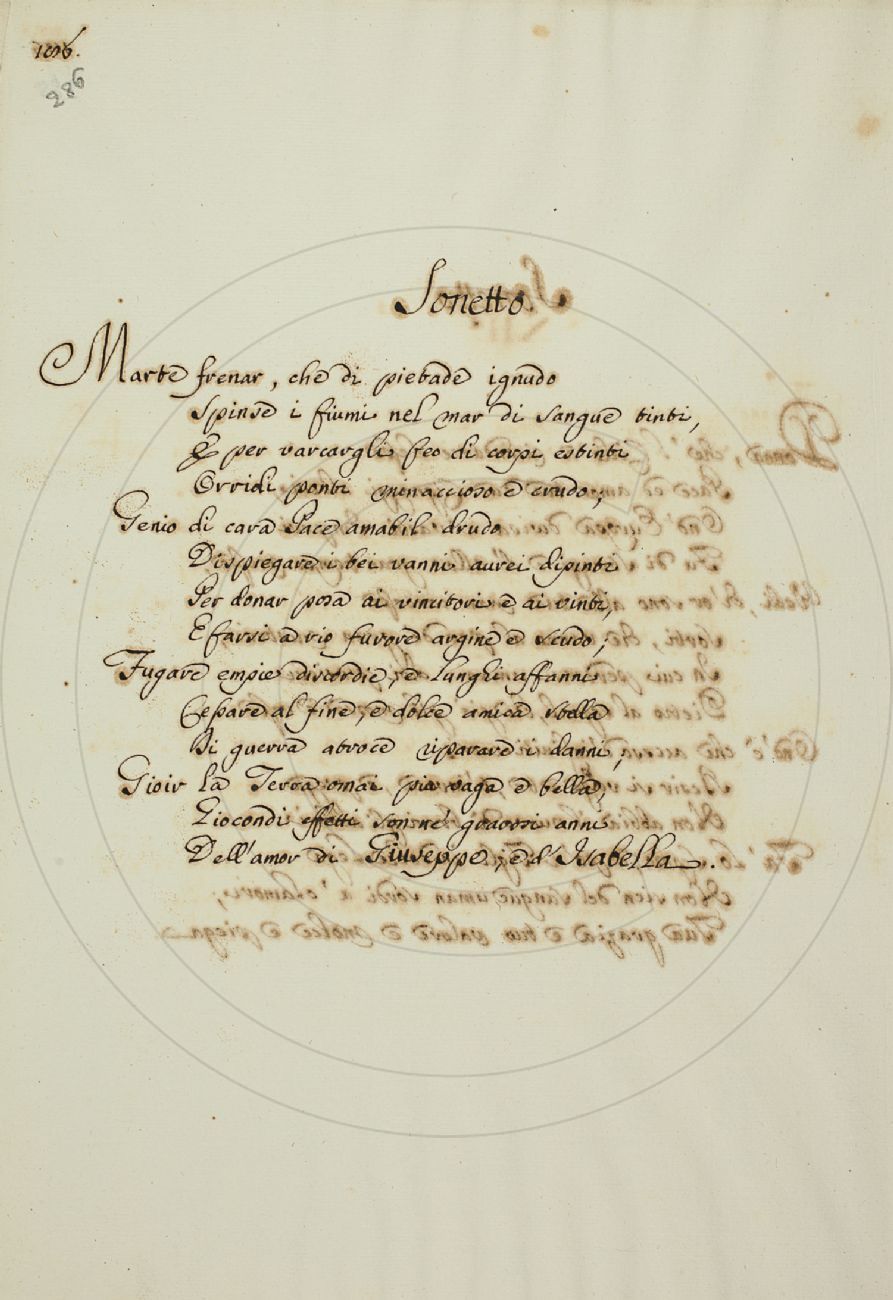 286
Sonetto.
Marte frenar, che di pietade ignudo
Spinse i fiumi nel mar di sangue tinti,
E per varcargli feo di corpi estinti
Orridi ponti minaccioso e crudo;
Genio di cara Pace amabil drudo
Dispiegare i bei vanni aurei dipinti
Per donar posa ai vincitori e ai vinti,
E farsi a rio furore argine e scudo;
Fugare empie discordie, e lunghi affanni
Cessare al fine, e dolce amica stella
Di guerra atroce riparare i danni;
Gioir la Terra omai più vaga e bella,
Giocondi effetti son ne' graziosi anni
Dell'amor di Giuseppe, e d'Isabella.